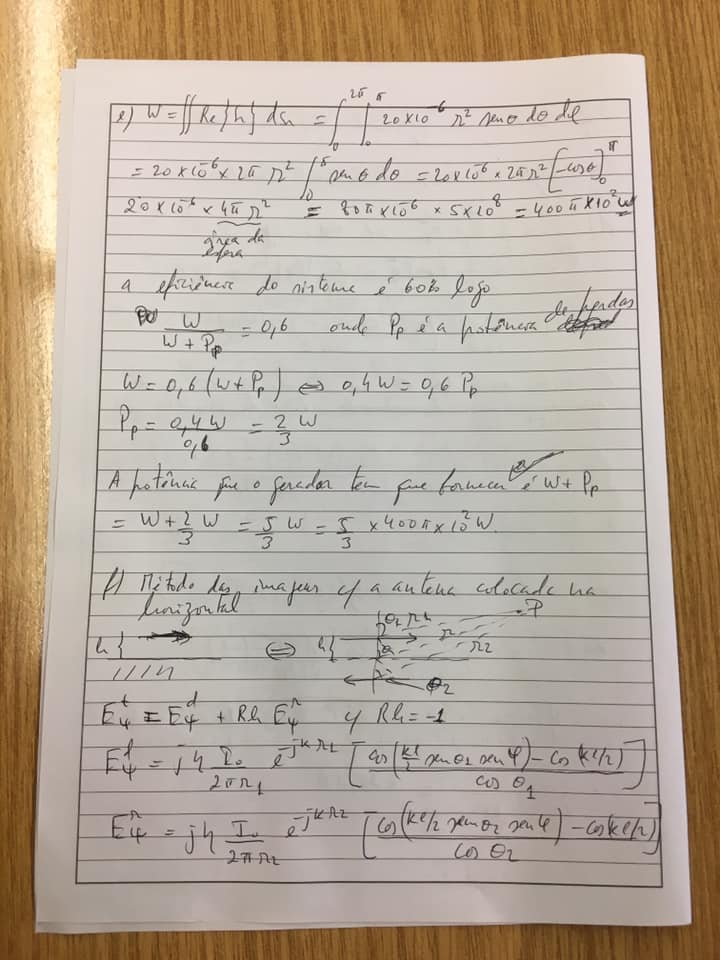 e) W = ∬ Re{h} ds_r = ∫₀^2π ∫₀^π 20×10⁻⁶ r² senθ dθ dφ
= 20×10⁻⁶ × 2π r² ∫₀^π senθ dθ = 20×10⁻⁶ × 2π r² [-cosθ]₀^π
20×10⁻⁶ × 4π r² = 80π×10⁻⁶ × 5×10⁸ = 400π×10² W
área da
esfera
a eficiência do sistema é 60% logo
W/(W + Pp) = 0,6 onde Pp é a potência de perdas
W = 0,6 (W + Pp) ⇔ 0,4 W = 0,6 Pp
Pp = 0,4 W/0,6 = 2/3 W
A potência que o gerador tem que fornecer é W + Pp
= W + 2/3 W = 5/3 W = 5/3 × 400π × 10² W.
f) Método das imagens c/ a antena colocada na
horizontal
h{ ⇔ h{ θ₁ r₁ P
θ r r₂
θ₂
E_ψ^t = E_ψ^d + Rh E_ψ^r c/ Rh = -1
E_ψ^d = jη I₀/(2πr₁) e^(-jkr₁) [(cos(kl/2 senθ₁ senφ) - cos(kl/2))/cosθ₁]
E_ψ^r = jη I₀/(2πr₂) e^(-jkr₂) [(cos(kl/2 senθ₂ senφ) - cos(kl/2))/cosθ₂]